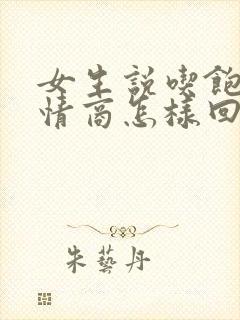 女生說喫飽
情商怎樣回
朱藝丹